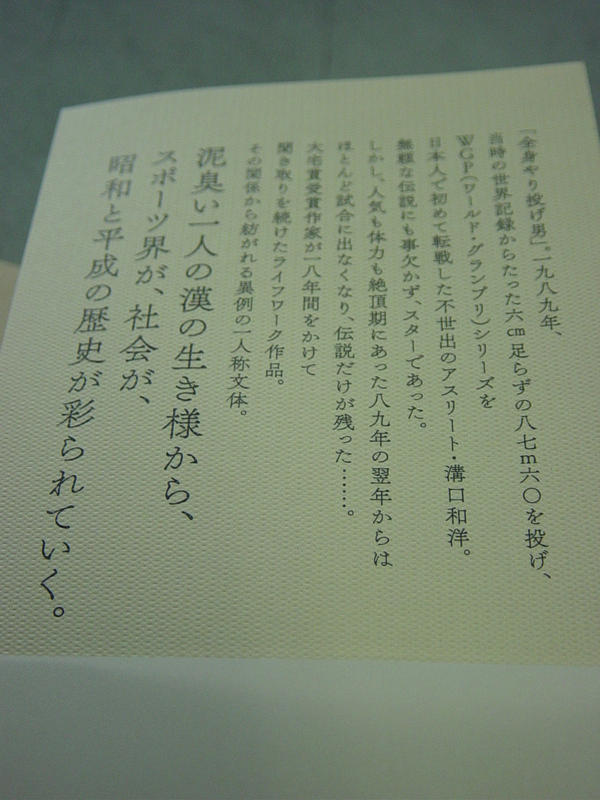 「全身やり投げ男」。一九八九年、
当時の世界記録からたった六㎝足らずの八七m六〇を投げ、
WGP(ワールド・グランプリ)シリーズを
日本人で初めて転戦した不世出のアスリート・溝口和洋。
無頼な伝説にも事欠かず、スターであった。
しかし、人気も体力も絶頂期にあった八九年の翌年からは
ほとんど試合に出なくなり、伝説だけが残った……。
大宅賞受賞作家が一八年間をかけて
聞き取りを続けたライフワーク作品。
その関係から紡がれる異例の一人称文体。
泥臭い一人の漢の生き様から、
スポーツ界が、社会が、
昭和と平成の歴史が彩られていく。